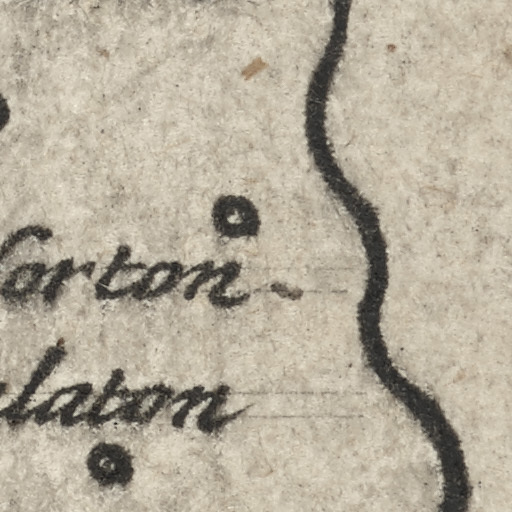 orton
laton